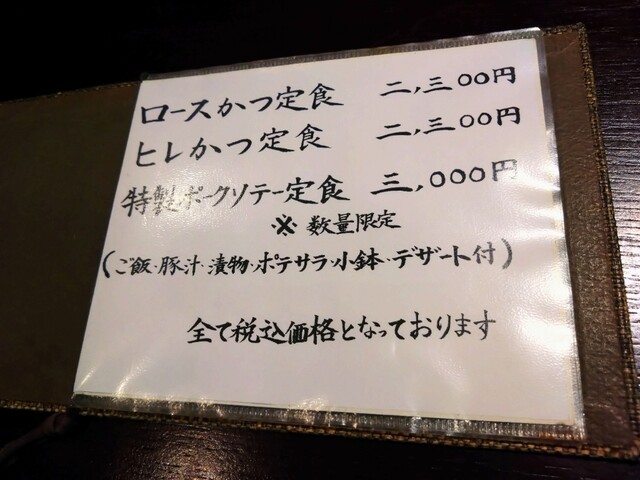 ロースかつ定食 二,三〇〇円
ヒレかつ定食 二,三〇〇円
特製ポークソテー定食 三,〇〇〇円
※ 数量限定
(ご飯・豚汁・漬物・ポテサラ・小鉢・デザート付)
全て税込価格となっております